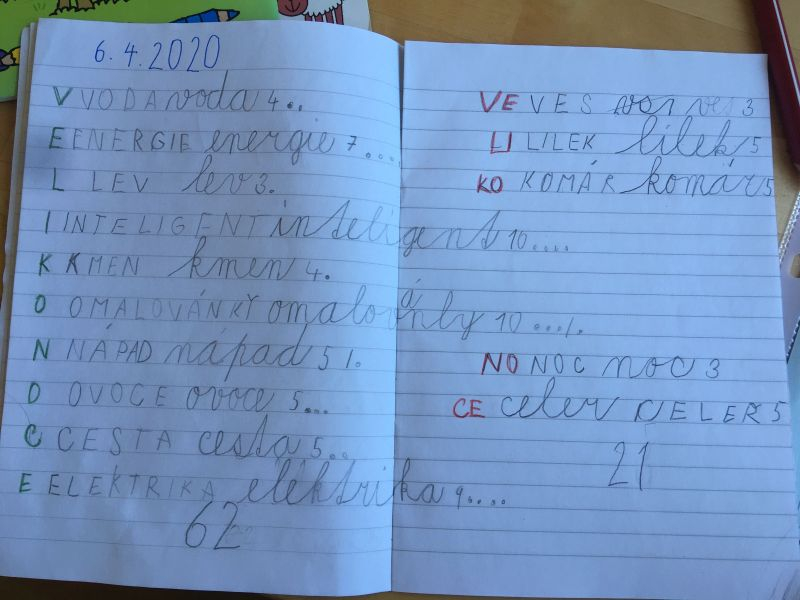 6.4.2020
V VODA voda 4..
E ENERGIE energie 7....
L LEV lev 3.
I INTELIGENT inteligent 10....
K KMEN kmen 4.
O OMALOVÁNKY omalovánky 10.../.
N NÁPAD nápad 5 /.
O OVOCE ovoce 5...
C CESTA cesta 5..
E ELEKTRIKA elektrika 9....
62
VE VES ves 3
LI LILEK lilek 5
KO KOMÁR komár 5
NO NOC noc 3
CE celer CELER 5
21